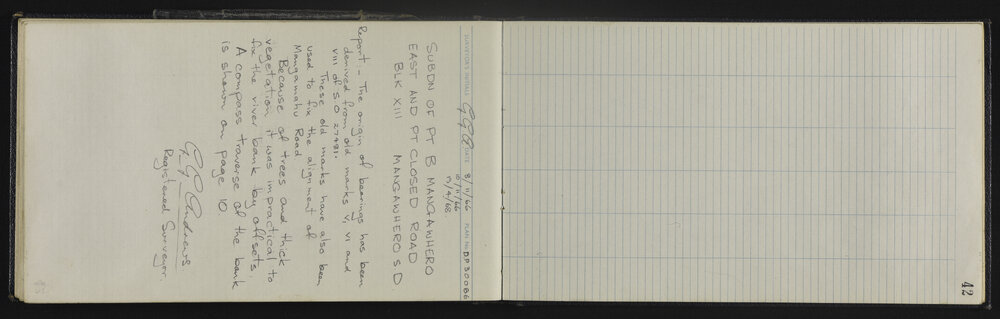 SURVEYOR'S INITIALS GGA DATE 8/11/66 PLAN No. DP 30086
10/11/66
17/4/68
SUBDN OF PT B MANGAWHERO
EAST AND PT CLOSED ROAD
BLK XIII MANGAWHERO S D.
Report:- The origin of bearings has been
derived from old marks V, VI and
VIII of SO 27481.
These old marks have also been
used to fix the alignment of
Mangamahu Road
Because of trees and thick
vegetation it was impractical to
fix the river bank by offsets.
A compass traverse of the bank
is shown on page 10
GG Andrews
Registered Surveyor.
42